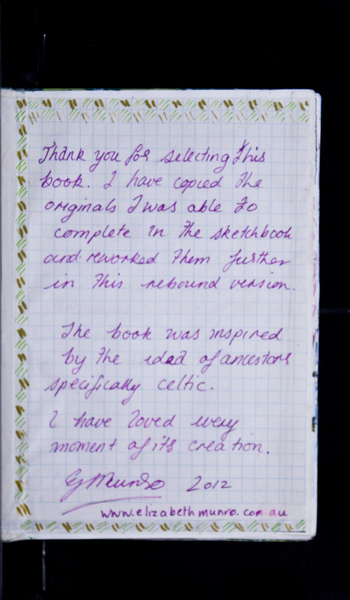 Thank you for selecting this
book. I have copied the
originals I was able to
complete in the sketchbook
and reworked them further
in this rebound version.
The book was inspired
by the idea of ancestors
specifically celtic.
I have loved every
moment of its creation.
EMunro 2012
www.elizabethmunro.com.au